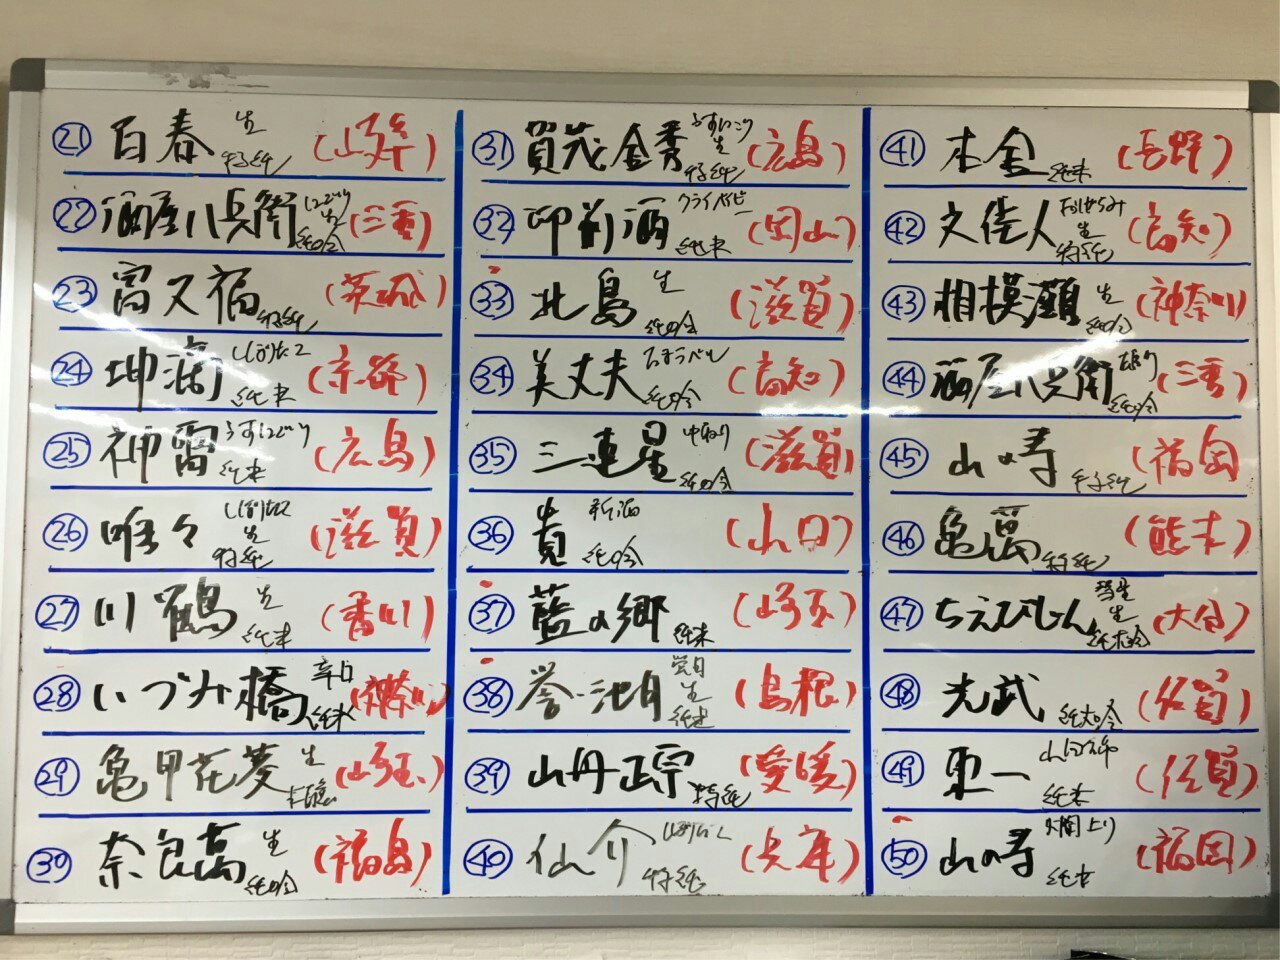 ㉑ 百春 生 特純 (岐阜)
㉒ 酒屋八兵衛 にごり 生 純吟 (三重)
㉓ 富久福 特純 (茨城)
㉔ 坤滴 しぼりたて 純米 (京都)
㉕ 神雷 うすにごり 純米 (広島)
㉖ 唯々 しぼりたて 生 特純 (滋賀)
㉗ 川鶴 生 純米 (香川)
㉘ いづみ橋 辛口 純米 (神奈川)
㉙ 亀甲花菱 生 本醸 (埼玉)
㉚ 奈良萬 生 純吟 (福島)
㉛ 賀茂金秀 うすにごり 生 特純 (広島)
㉜ 御前酒 クライベイビー 純米 (岡山)
㉝ 北島 生 純吟 (滋賀)
㉞ 美丈夫 純吟 (高知)
㉟ 三連星 中取り 純吟 (滋賀)
㊱ 貴 新酒 純吟 (山口)
㊲ 藍の郷 純米 (埼玉)
㊳ 誉池月 生 純米 (島根)
㊴ 山丹正宗 特純 (愛媛)
㊵ 仙介 しぼりたて 特純 (兵庫)
㊶ 本金 純米 (長野)
㊷ 文佳人 おりがらみ 生 特純 (高知)
㊸ 相模灘 生 純吟 (神奈川)
㊹ 酒屋八兵衛 純吟 (三重)
㊺ 山の寿 特純 (福岡)
㊻ 亀萬 特純 (熊本)
㊼ ちえびじん 生 純大吟 (大分)
㊽ 光武 純大吟 (佐賀)
㊾ 東一 山田錦 純米 (佐賀)
㊿ 山の寿 純米 (福岡)